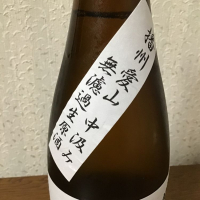 播州愛山中汲み
無濾過生原酒